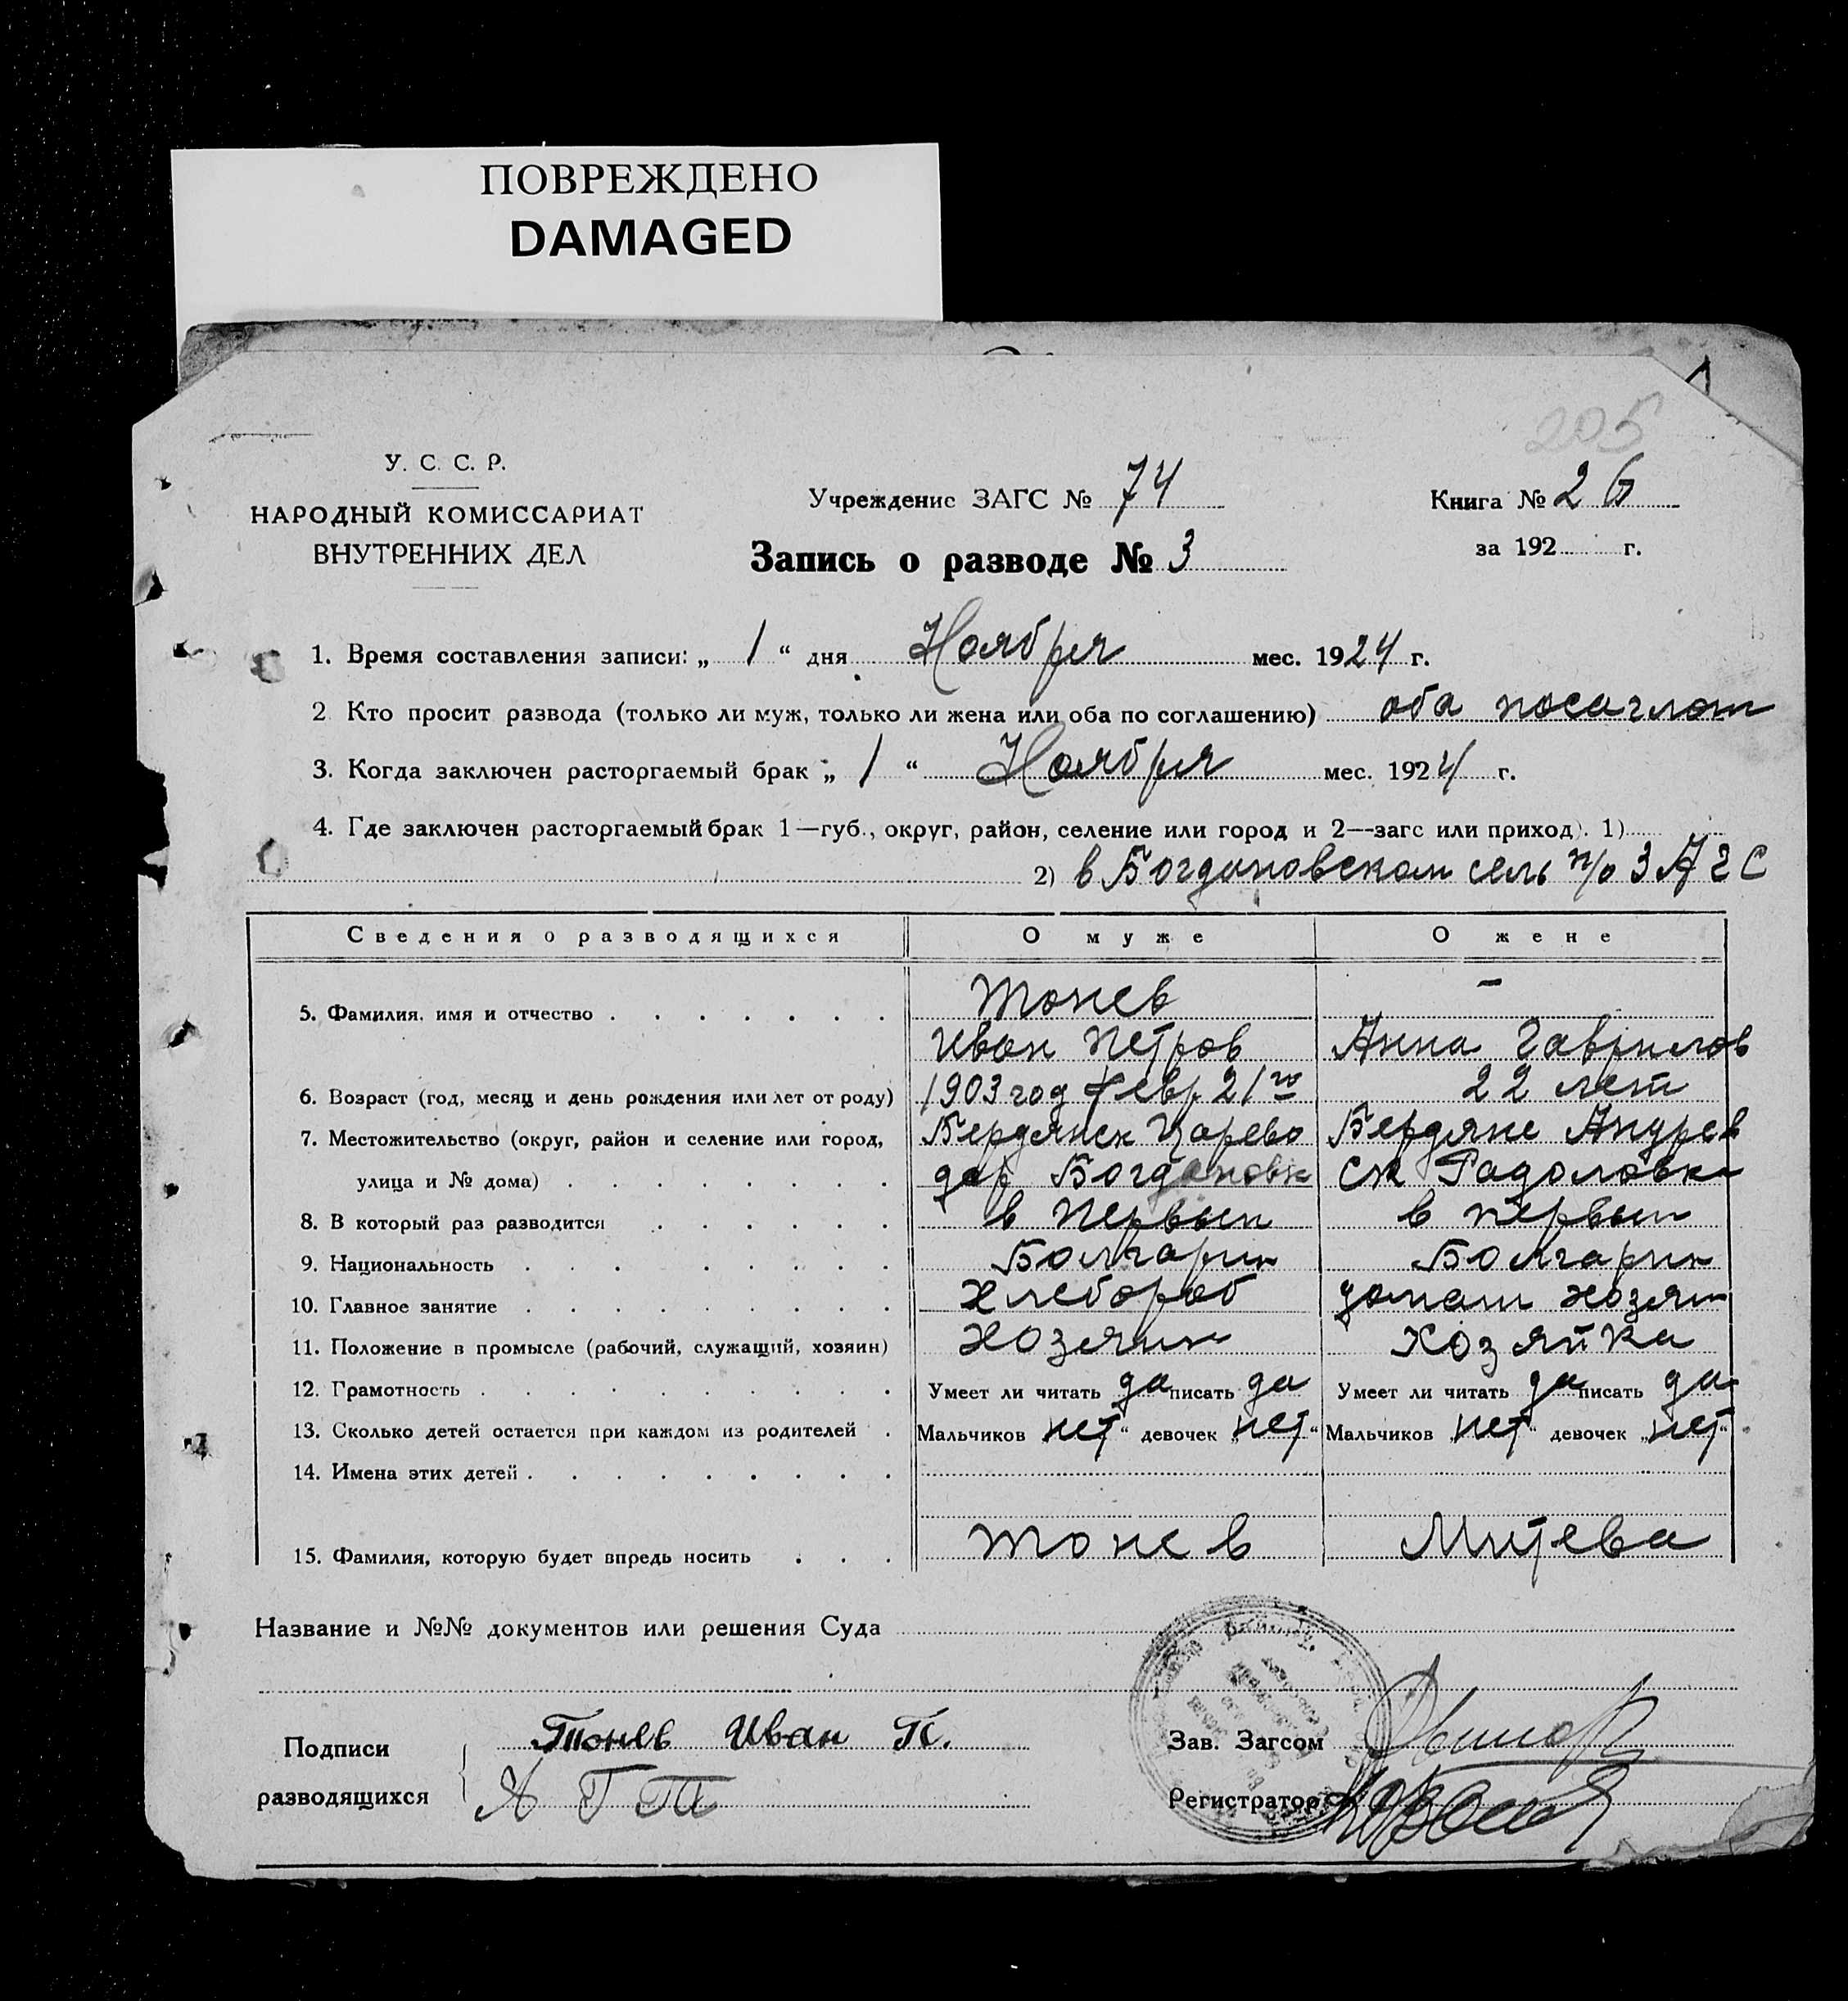 ПОВРЕЖДЕНО
DAMAGED
205
У. С. С. Р.
НАРОДНЫЙ КОМИССАРИАТ
ВНУТРЕННИХ ДЕЛ
Учреждение ЗАГС № 74
Книга № 26
за 192 г.
Запись о разводе № 3
1. Время составления записи: „ 1 “ дня Ноября мес. 1924 г.
2 Кто просит развода (только ли муж, только ли жена или оба по соглашению) оба посаглат
3. Когда заключен расторгаемый брак „ 1 “ Ноября мес. 1924 г.
4. Где заключен расторгаемый брак 1—губ., округ, район, селение или город и 2—загс или приход). 1)
2) в Богдановском сель п/о ЗАГС
Сведения о разводящихся О муже О жене
5. Фамилия, имя и отчество Тонев –
Иван Петров Анна Гаврилов
6. Возраст (год, месяц и день рождения или лет от роду) 1903 год февр 21го 22 лет
7. Местожительство (округ, район и селение или город, Бердянск Царево Бердянс Андрев
улица и № дома) дар Богдановк ск Радоловка
8. В который раз разводится в первып в первып
9. Национальность Болгарин Болгарин
10. Главное занятие хлебороб домаш хозяин
11. Положение в промысле (рабочий, служащий, хозяин) хозяин Хозяйка
12. Грамотность Умеет ли читать да писать да Умеет ли читать да писать да
13. Сколько детей остается при каждом из родителей Мальчиков „нет“ девочек „нет“ Мальчиков „нет“ девочек „нет“
14. Имена этих детей
15. Фамилия, которую будет впредь носить Тонев Митева
Название и №№ документов или решения Суда
Подписи
разводящихся
Тонев Иван П.
А Г Т
Зав. Загсом
Регистратор